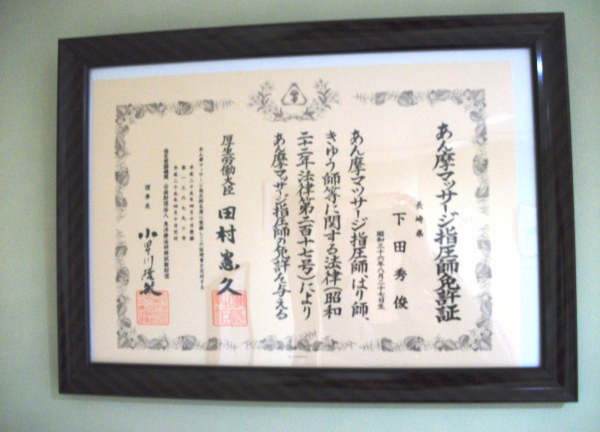 あん摩マッサージ指圧師免許証
長崎県
下田秀俊
昭和三十六年八月二十七日生
あん摩マツサージ指圧師、はり師、
きゆう師等に関する法律（昭和
二十二年法律第二百十七号）により
あん摩マツサージ指圧師の免許を与える
厚生労働大臣 田村憲久
理事長 小早川隆敏